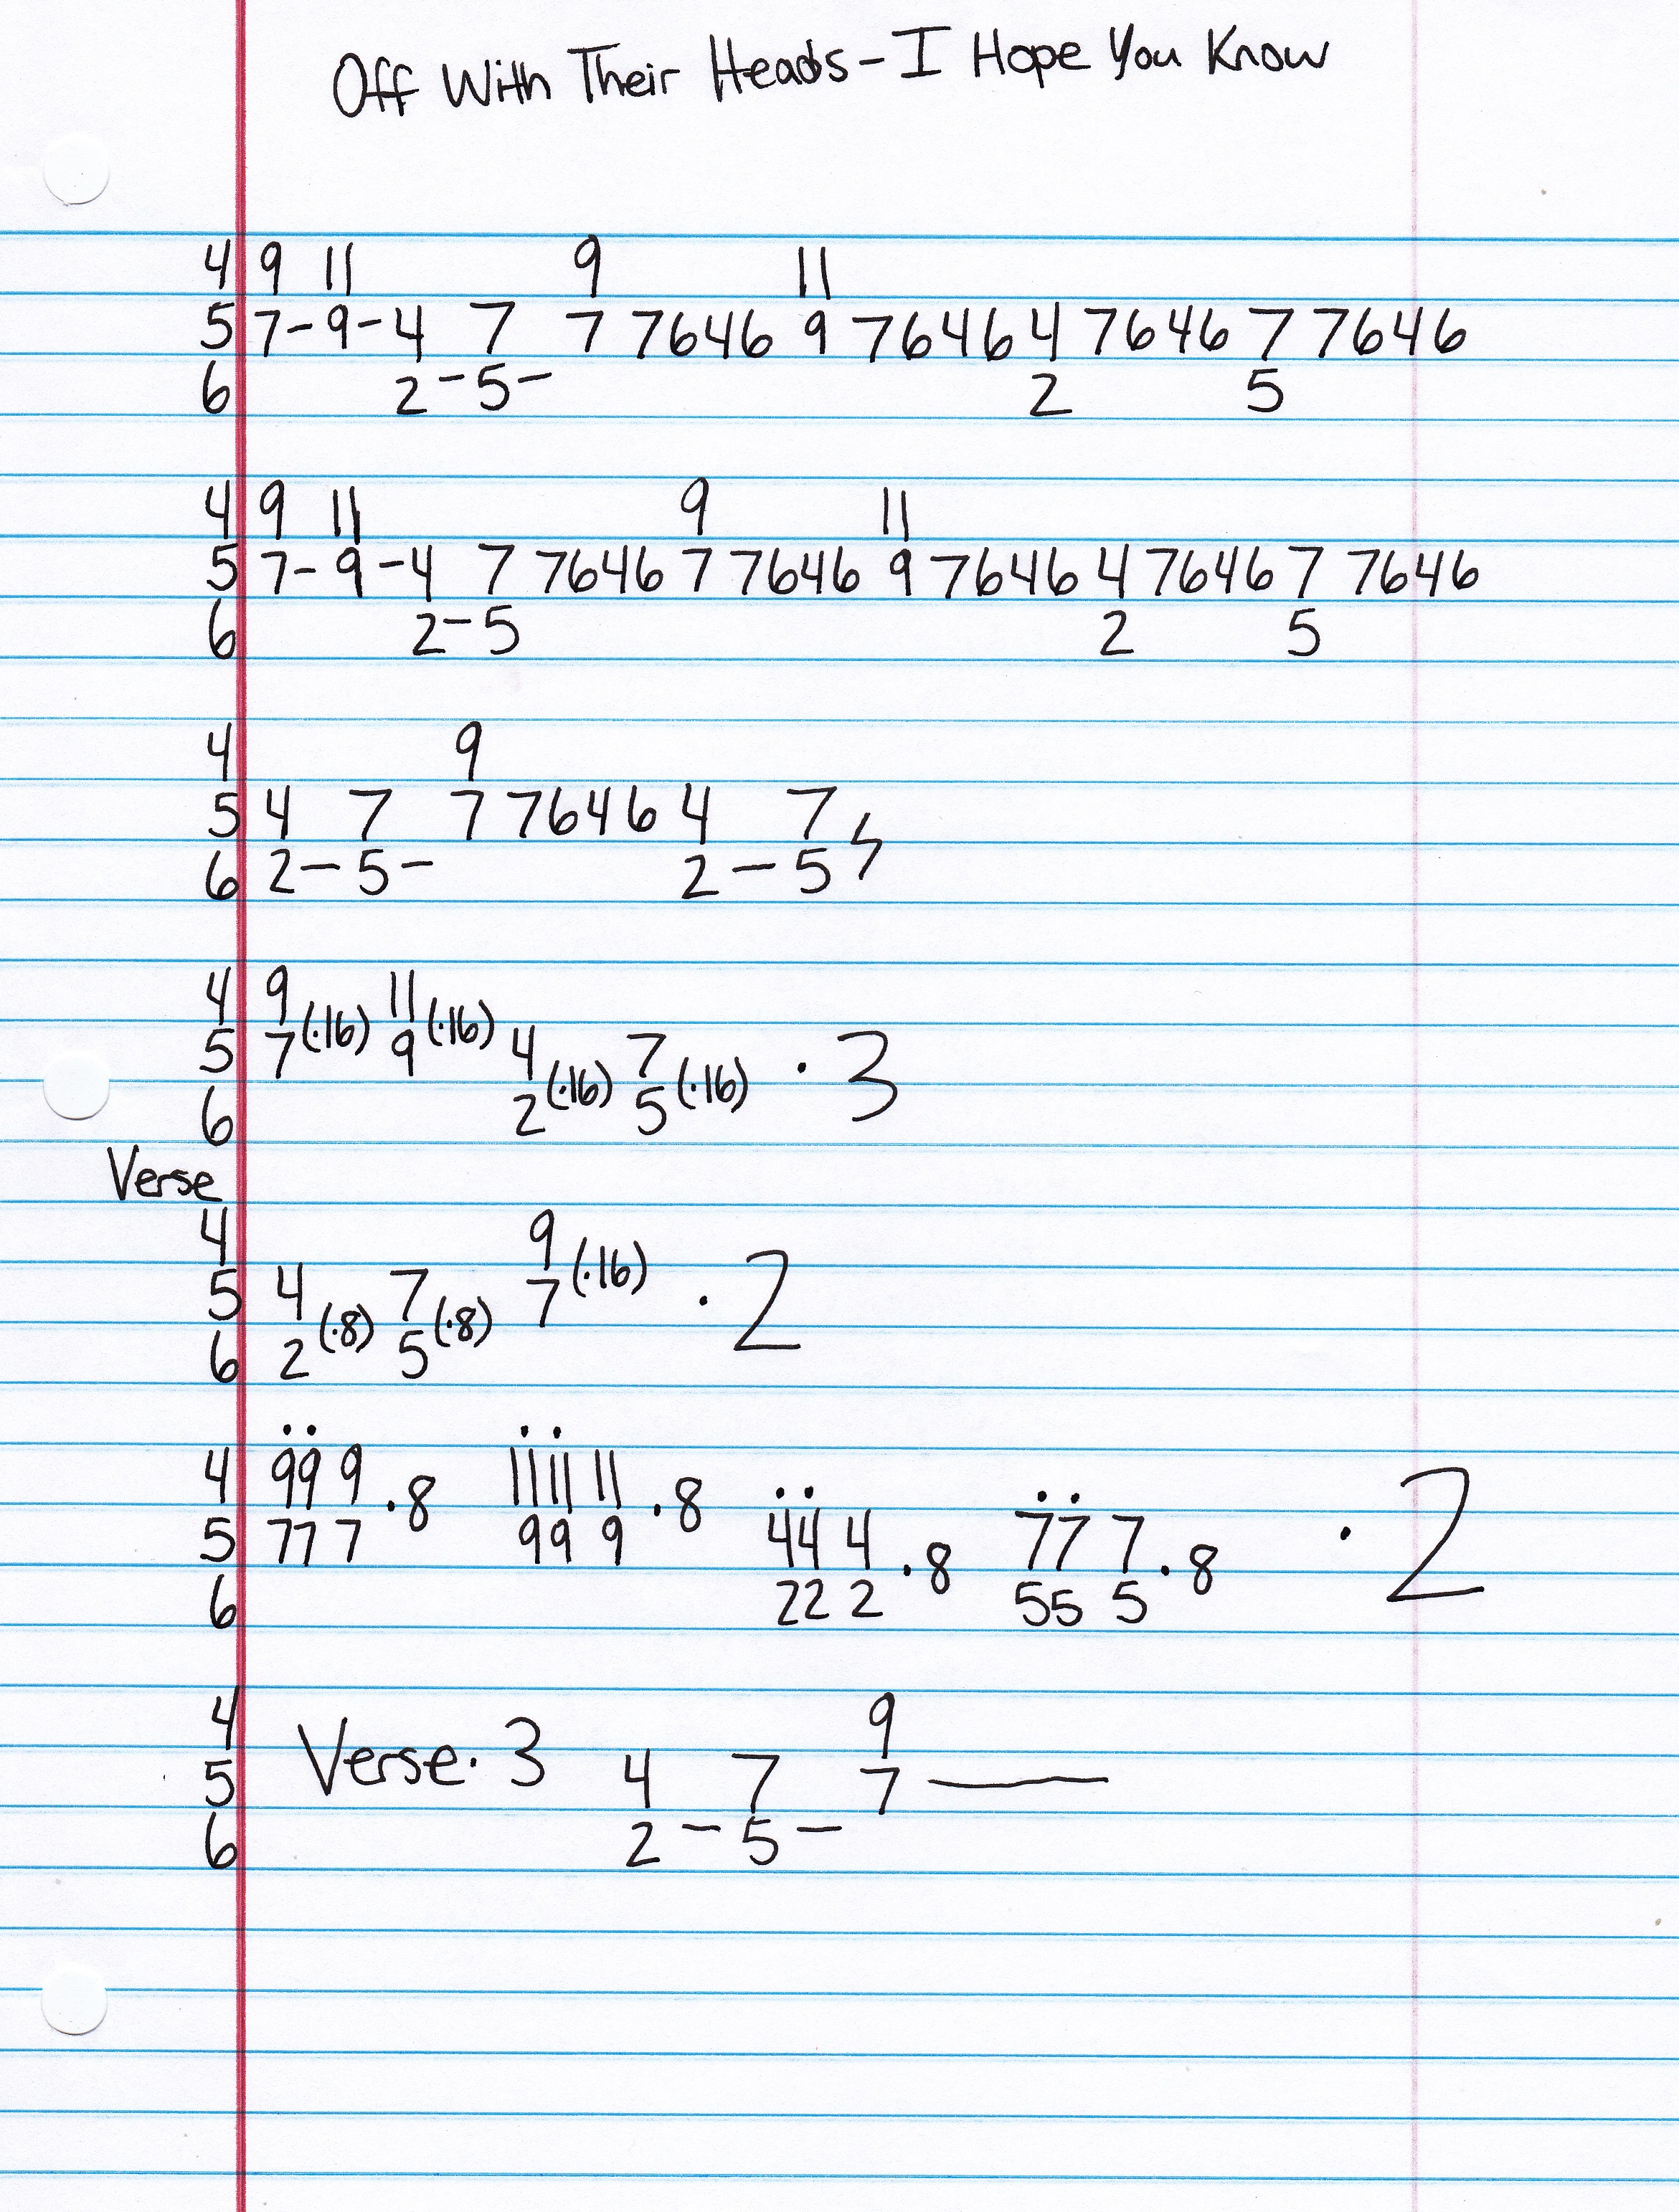 Off With Their Heads - I Hope You Know
4 9 11 9 11
5 7 - 9 - 4 7 7 7646 9 7646 4 7646 7 7646
6 2 - 5 - 2 5
4 9 11 9 11
5 7 - 9 - 4 7 7646 7 7646 9 7646 4 7646 7 7646
6 2 - 5 2 5
4 9
5 4 7 7 7646 4 7
6 2 - 5 - 2 - 5
4 9 (·16) 11 (·16)
5 7 9 4 (·16) 7 (·16) · 3
6 2 5
Verse
4 9 (·16)
5 4 (·8) 7 (·8) 7 · 2
6 2 5
4 99 9 ·8 1111 11 ·8
5 77 7 99 9 44 4 ·8 77 7 ·8 · 2
6 22 2 55 5
4 9
5 Verse · 3 4 7 7 —
6 2 - 5 -